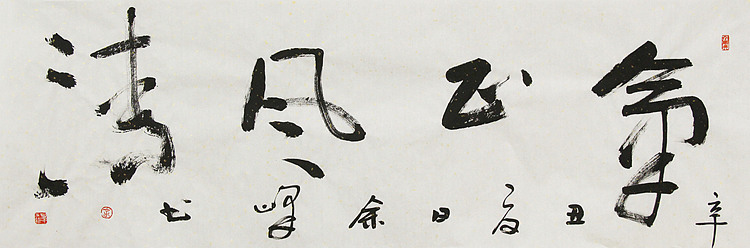 氣正风清
辛丑夏日余峰书